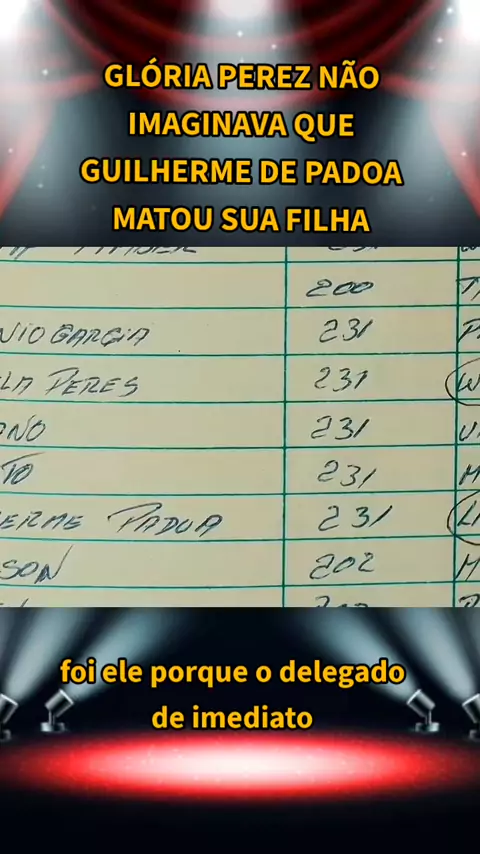 GLÓRIA PEREZ NÃO
IMAGINAVA QUE
GUILHERME DE PADOA
MATOU SUA FILHA
200
NIO GARCIA 231
LA PERES 231 W
ANO 231
TO 231 M
ERME PADUA 231 LI
SON 202 M
foi ele porque o delegado
de imediato